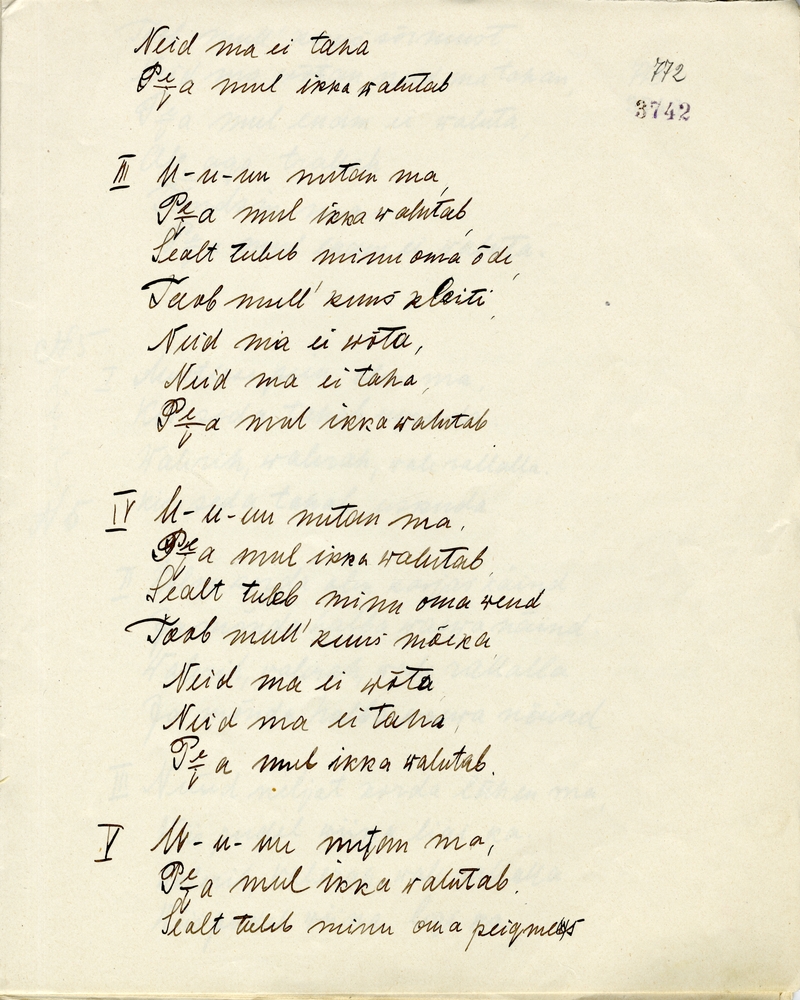 Neid ma ei taha
Pe/ia mul ikka walutab
772
3742
III U-u-uu nutan ma,
Pe/ia mul ikka walutab,
Sealt tuleb minu oma õde,
Toob mull' kuus kleiti,
Neid ma ei wõta,
Neid ma ei taha,
Pe/ia mul ikka walutab.
IV U-u-uu nutan ma,
Pe/ia mul ikka walutab,
Sealt tuleb minu oma wend
Toob mull' kuus mõeka,
Neid ma ei wõta
Neid ma ei taha,
Pe/ia mul ikka walutab.
V U-u-uu nutan ma,
Pe/ia mul ikka walutab.
Sealt tuleb minu oma peigmees